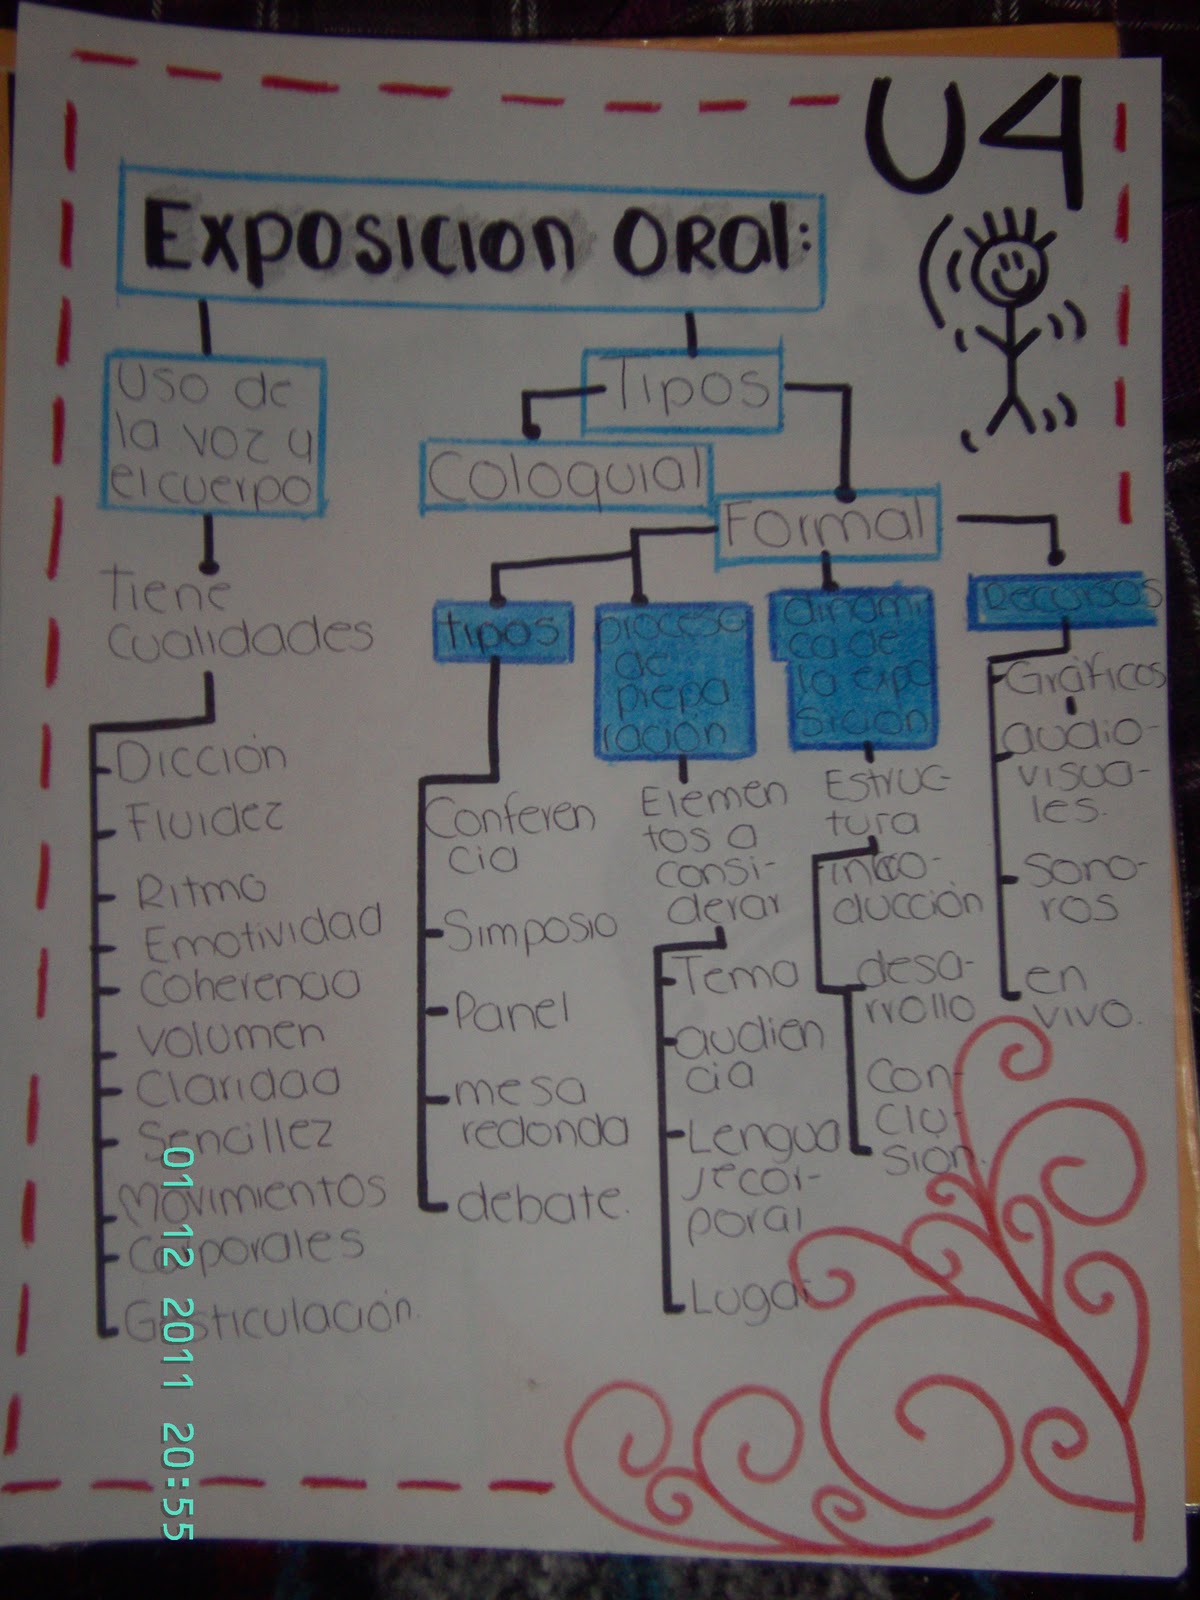 U4
EXPOSICION ORAL:
Uso de
la voz y
el cuerpo
Tiene
cualidades
Dicción
Fluidez
Ritmo
Emotividad
Coherencia
Volumen
Claridad
Sencillez
Movimientos
Corporales
Gesticulación.
Tipos
Coloquial
Formal
tipos
Conferen
cia
Simposio
Panel
mesa
redonda
debate.
proceso
de
prepa
ración
Elemen
tos a
consi-
derar
Tema
audien
cia
Lengua
je cor-
poral
Lugar
dinámi
ca de
la expo
sición
Estruc-
tura
intro-
ducción
desa-
rrollo
Con-
clu-
sión.
Recursos
Gráficos
audio-
visua-
les.
sono-
ros
en
vivo.
01 12 2011 20:55